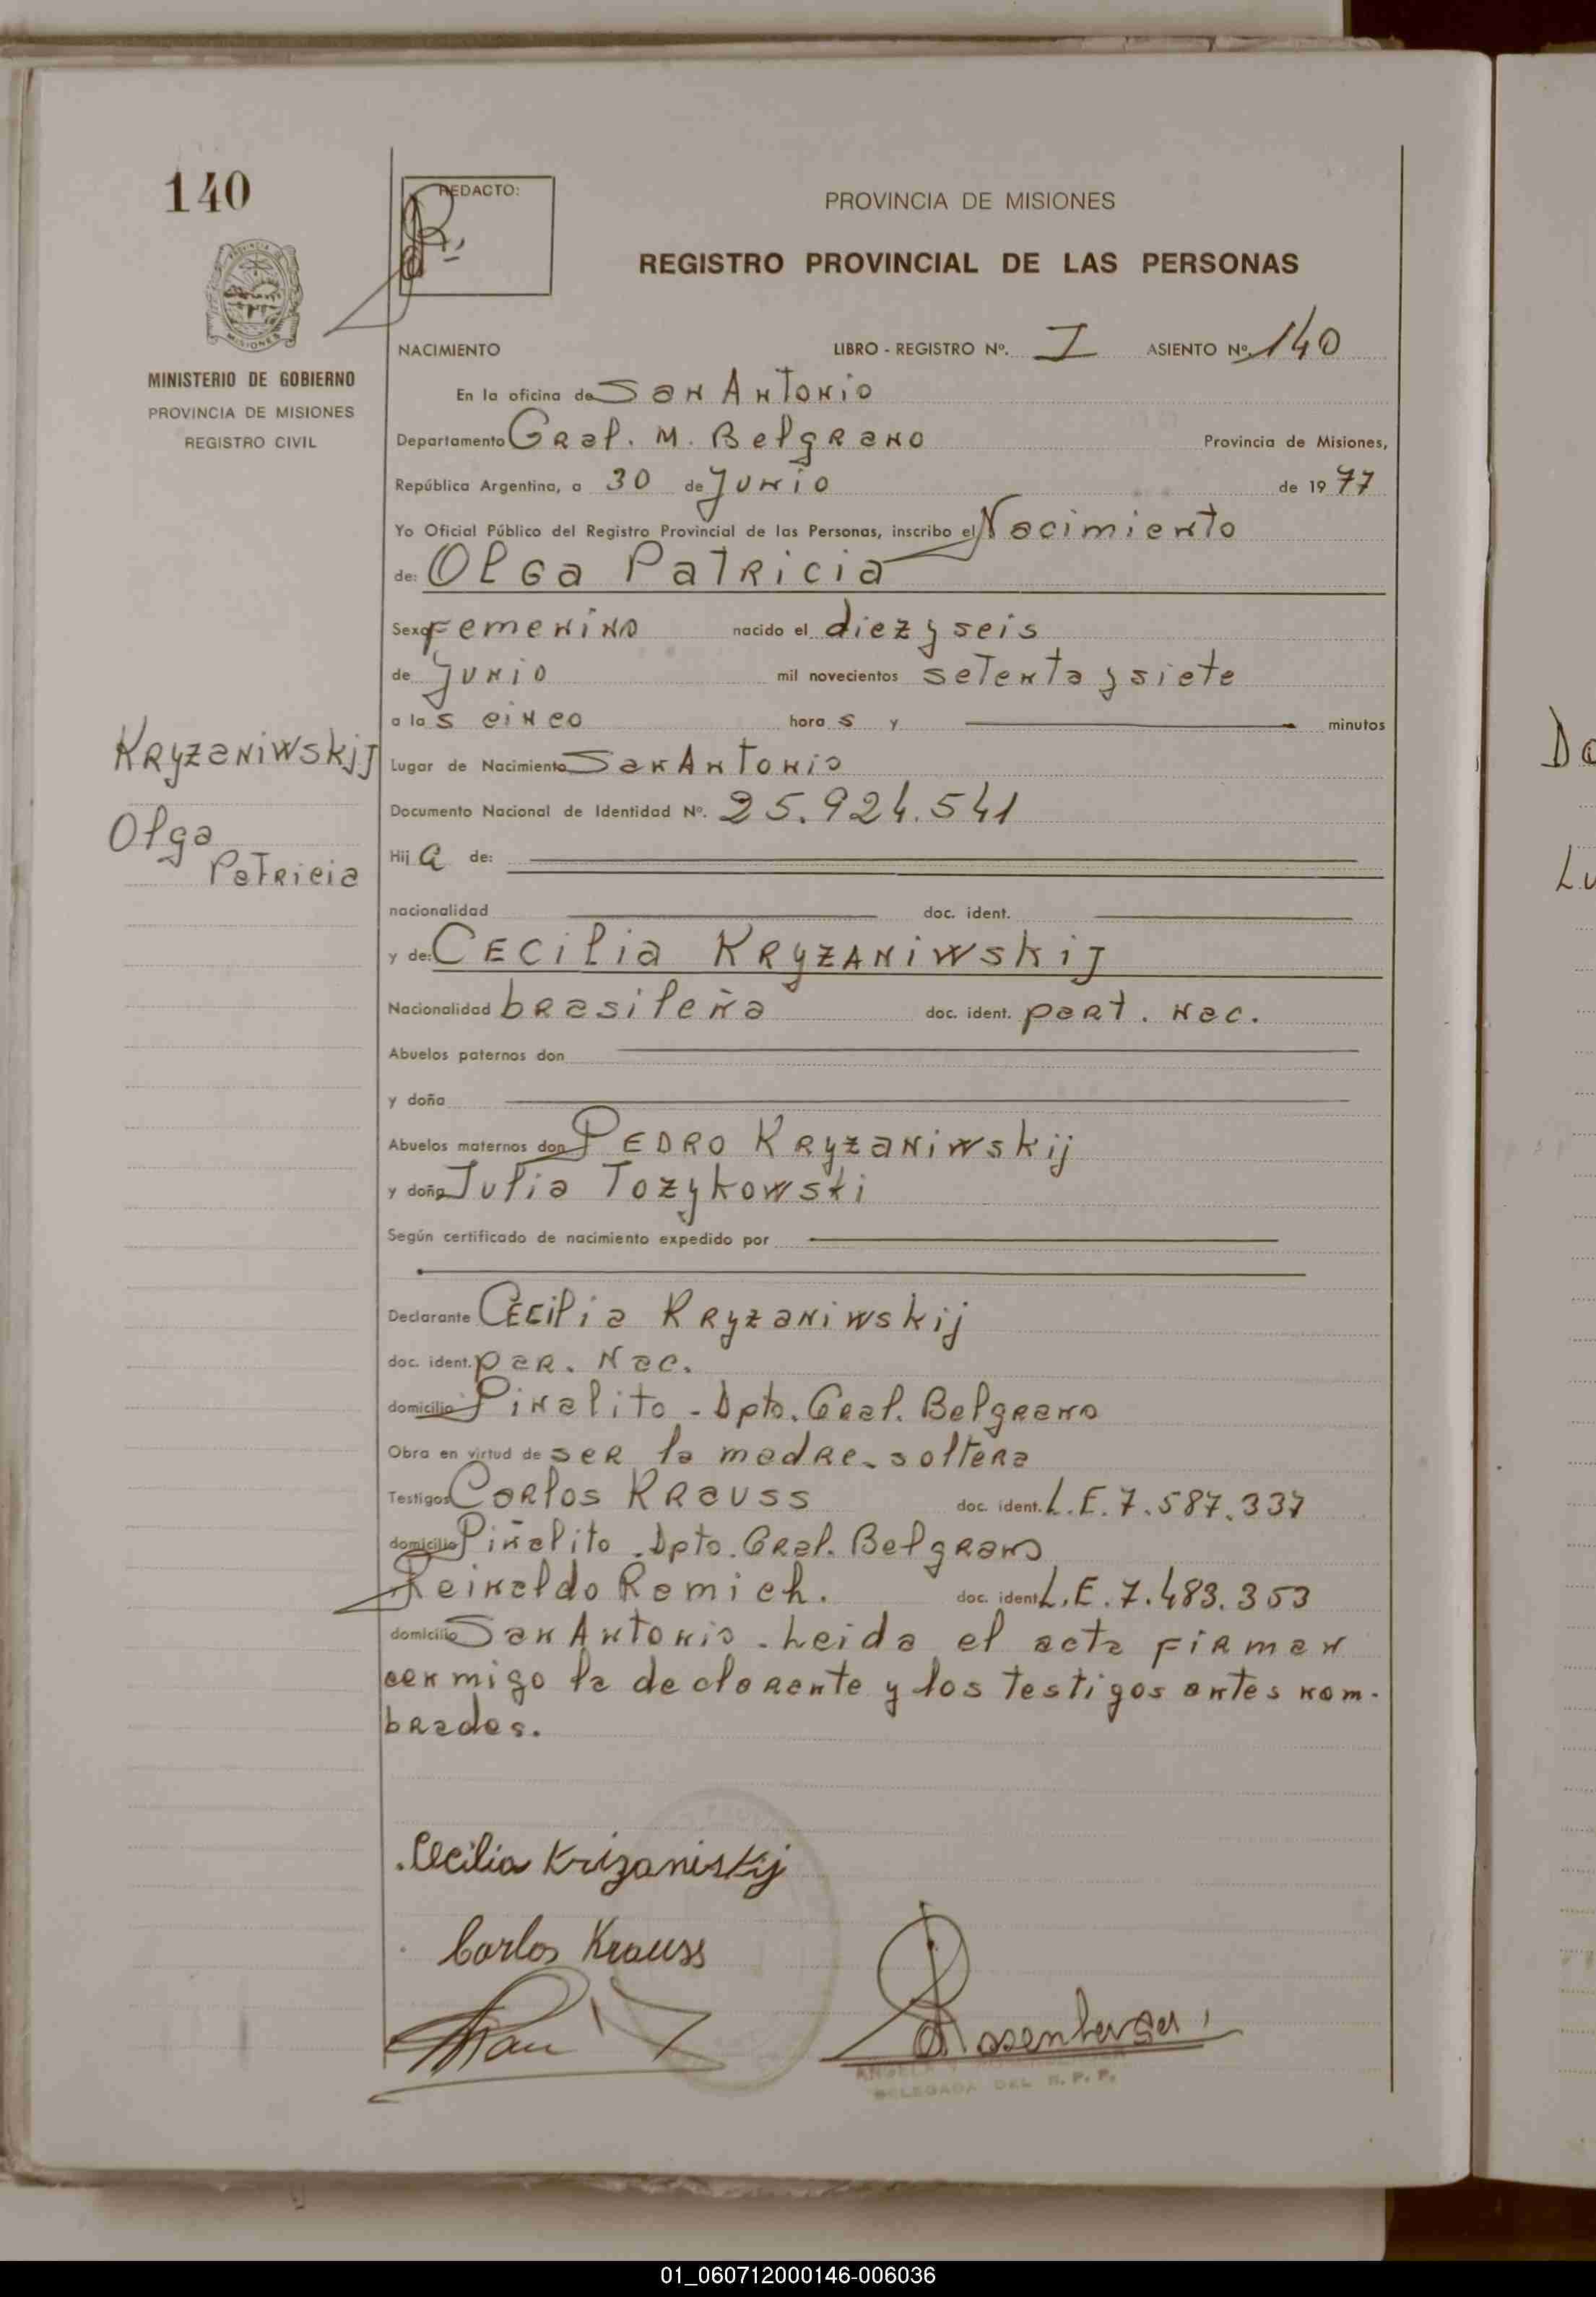 140
REDACTO:
PROVINCIA DE MISIONES
REGISTRO PROVINCIAL DE LAS PERSONAS
MISIONES
MINISTERIO DE GOBIERNO
PROVINCIA DE MISIONES
REGISTRO CIVIL
NACIMIENTO LIBRO - REGISTRO Nº. I ASIENTO Nº 140
En la oficina de San Antonio
Departamento Gral. M. Belgrano Provincia de Misiones,
República Argentina, a 30 de Junio de 1977
Yo Oficial Público del Registro Provincial de las Personas, inscribo el Nacimiento
de: Olga Patricia
Sexo Femenino nacido el diez y seis
de Junio mil novecientos setenta y siete
a las cinco horas y minutos
Kryzaniwskij
Olga
Patricia
Lugar de Nacimiento San Antonio
Documento Nacional de Identidad Nº. 25.924.541
Hija de:
nacionalidad doc. ident.
y de: Cecilia Kryzaniwskij
Nacionalidad brasileña doc. ident. part. Nac.
Abuelos paternos don
y doña
Abuelos maternos don Pedro Kryzaniwskij
y doña Julia Tozykowski
Según certificado de nacimiento expedido por
Declarante Cecilia Kryzaniwskij
doc. ident. par. Nac.
domicilio Piñalito - Dpto. Gral. Belgrano
Obra en virtud de ser la madre soltera
Testigos Carlos Krauss doc. ident. L.E. 7.587.337
domicilio Piñalito - Dpto. Gral. Belgrano
Reinaldo Ramich. doc. ident. L.E. 7.483.353
domicilio San Antonio. Leida el acta firman
conmigo la declarante y los testigos antes nom-
brados.
Cecilia Krizaniskij
Carlos Krauss
Rosenberger
DELEGADA DEL R. P. P.
Do
Lu
01_060712000146-006036